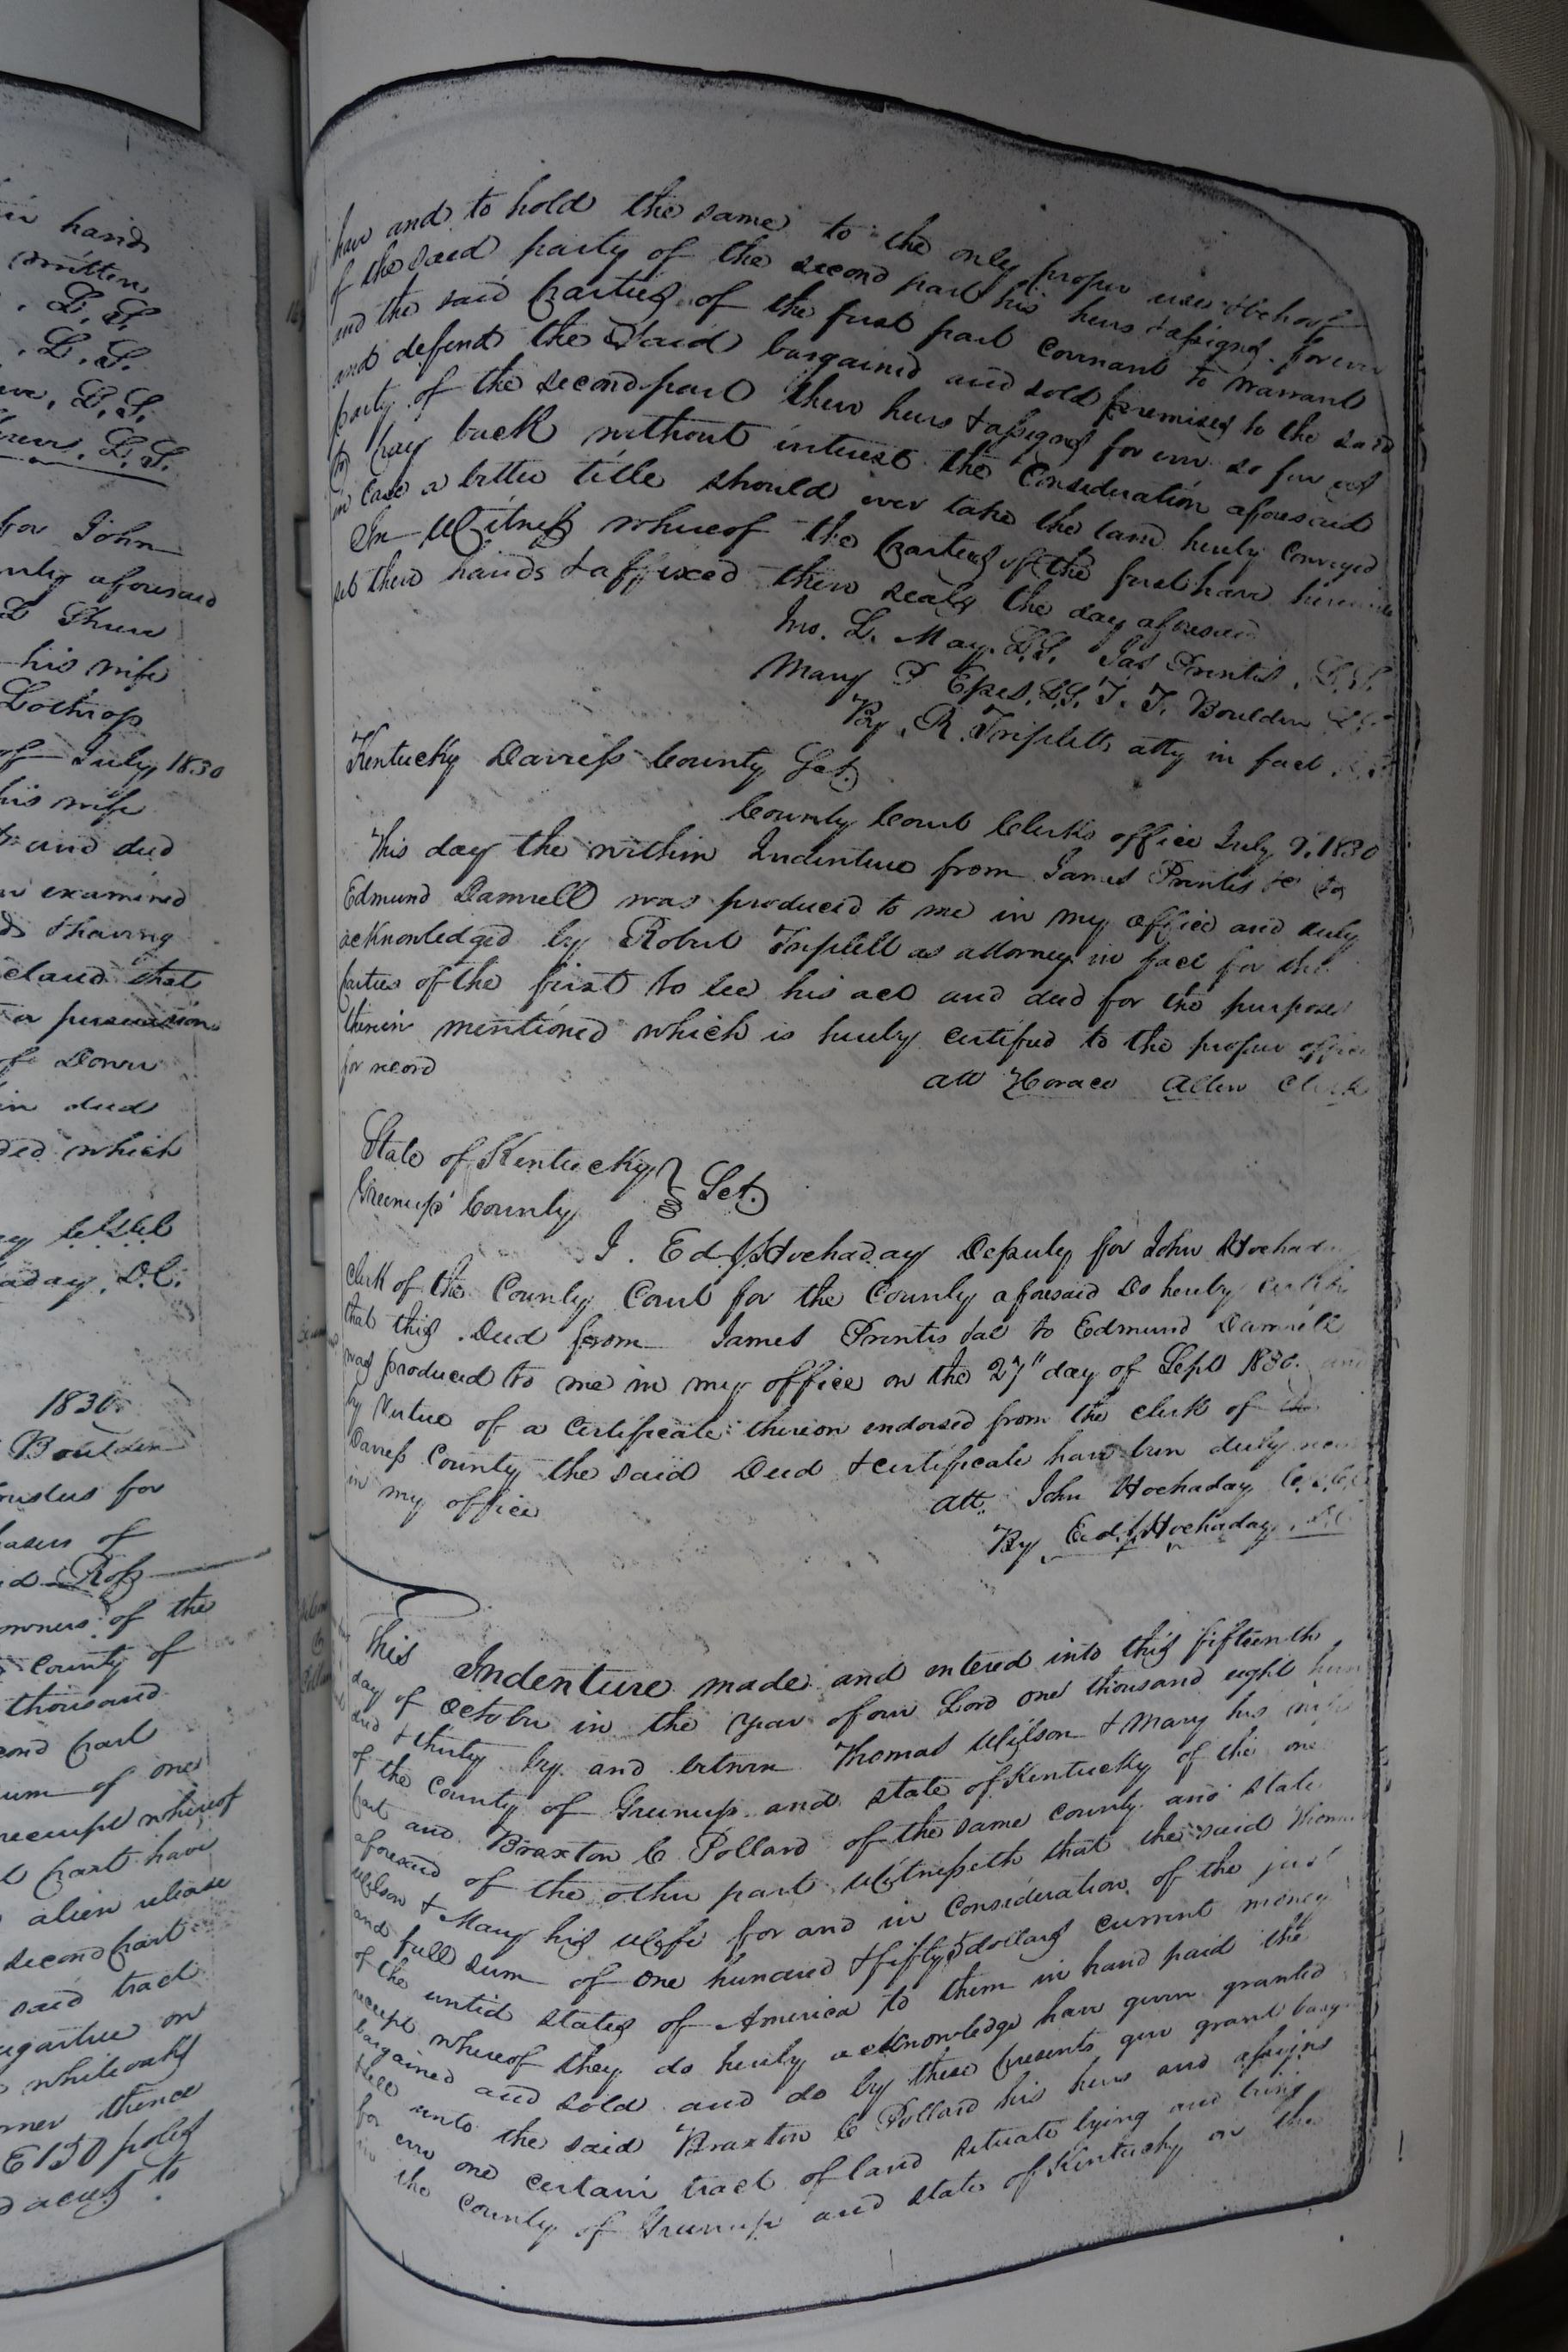 hand
written
L. S.
L. S.
L. S.
L. S.
for John
aforesaid
his wife
Lothrop
of July 1830
his wife
and deed
examined
& having
that
or persuasion
of Dower
in deed
which
D.C.
1830
Boulden
for
of
Ross
owners of the
County of
thousand
second part
sum of one
receipt whereof
part have
alien release
second part
said tract
on
whiteoaks
thence
E 150 poles
to
have and to hold the same to the only proper use & behoof
of the said party of the second part his heirs & assigns forever
and the said parties of the first part covenant to warrant
and defend the said bargained and sold premises to the said
party of the second part their heirs & assigns for ever so far as
to pay back without interest the Consideration aforesaid
in case a better title should ever take the land hereby Conveyed
In Witness whereof the parties of the first have hereunto
set their hands & affixed their seals the day aforesaid
Jno. L. May. L.S. Jas Prentis. L.S.
Mary P Epes. L.S. T. T. Bouldin L.S.
By R. Triplett atty in fact
Kentucky Daviess County Sct.
County Court Clerks office July 9. 1830
This day the within Indenture from James Prentis &c to
Edmund Damrell was produced to me in my office and duly
acknowledged by Robert Triplett as attorney in fact for the
parties of the first to bee his act and deed for the purposes
therein mentioned which is hereby certified to the proper office
for record
att Horace Allen Clerk
State of Kentucky
Greenup County Sct.
I. Ed J Hockaday Deputy for John Hockaday
clerk of the County Court for the County aforesaid Do hereby certify
that this Deed from James Prentis &c to Edmund Damrell
was produced to me in my office on the 27" day of Sept 1830. and
by Virtue of a Certificate thereon endorsed from the clerk of
Daviess County the said Deed & certificate have been duly
in my office
att. John Hockaday
By Ed J Hockaday
This Indenture made and entered into this fifteenth
day of October in the year of our Lord one thousand eight hun
dred & thirty by and between Thomas Wilson & Mary his wife
of the County of Greenup and state of Kentucky of the one
part and Braxton C Pollard of the same county and state
aforesaid of the other part Witnesseth that the said Thomas
Wilson & Mary his Wife for and in Consideration of the just
and full sum of one hundred & fifty dollars current money
of the united states of America to them in hand paid the
receipt whereof they do hereby acknowledge have given granted
bargained and sold and do by these presents give grant
& sell unto the said Braxton C Pollard his heirs and assigns
for ever one certain tract of land situate lying and being
in the County of Greenup and state of Kentucky on the